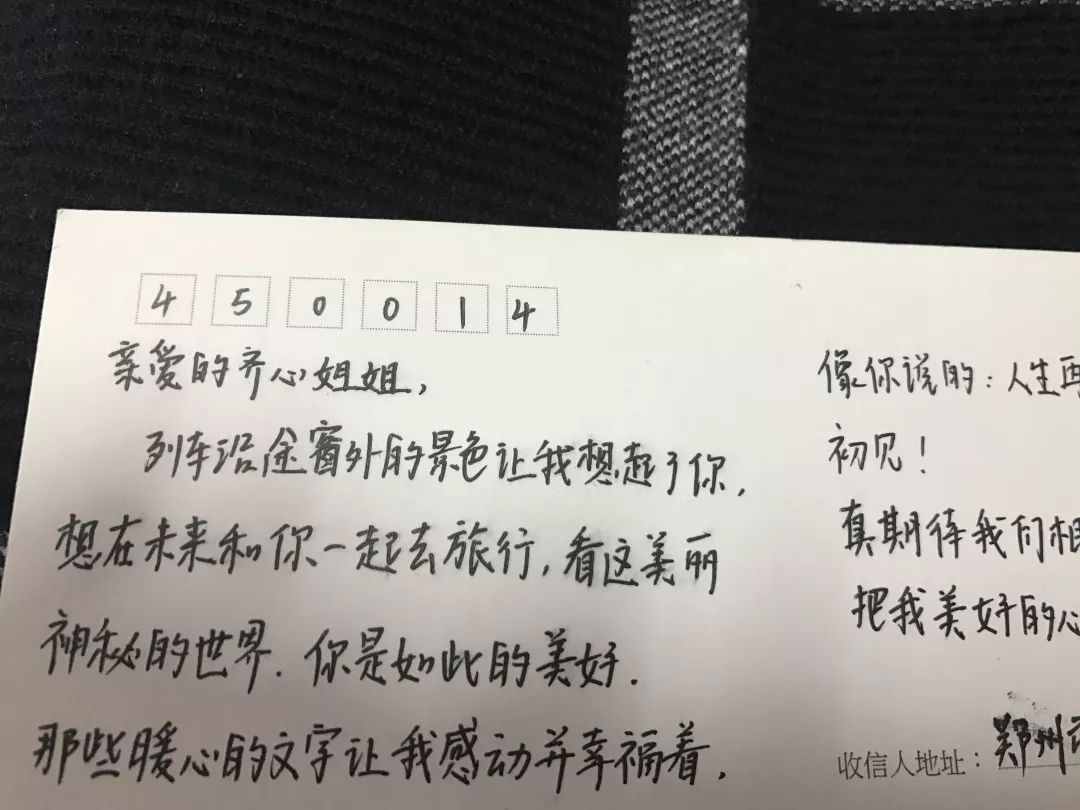 450014
亲爱的齐心姐姐，
列车沿途窗外的景色让我想起了你，
想在未来和你一起去旅行，看这美丽
神秘的世界．你是如此的美好．
那些暖心的文字让我感动并幸福着，
像你说的：人生再
初见！
真期待我们相
把我美好的心
郑州市
收信人地址：